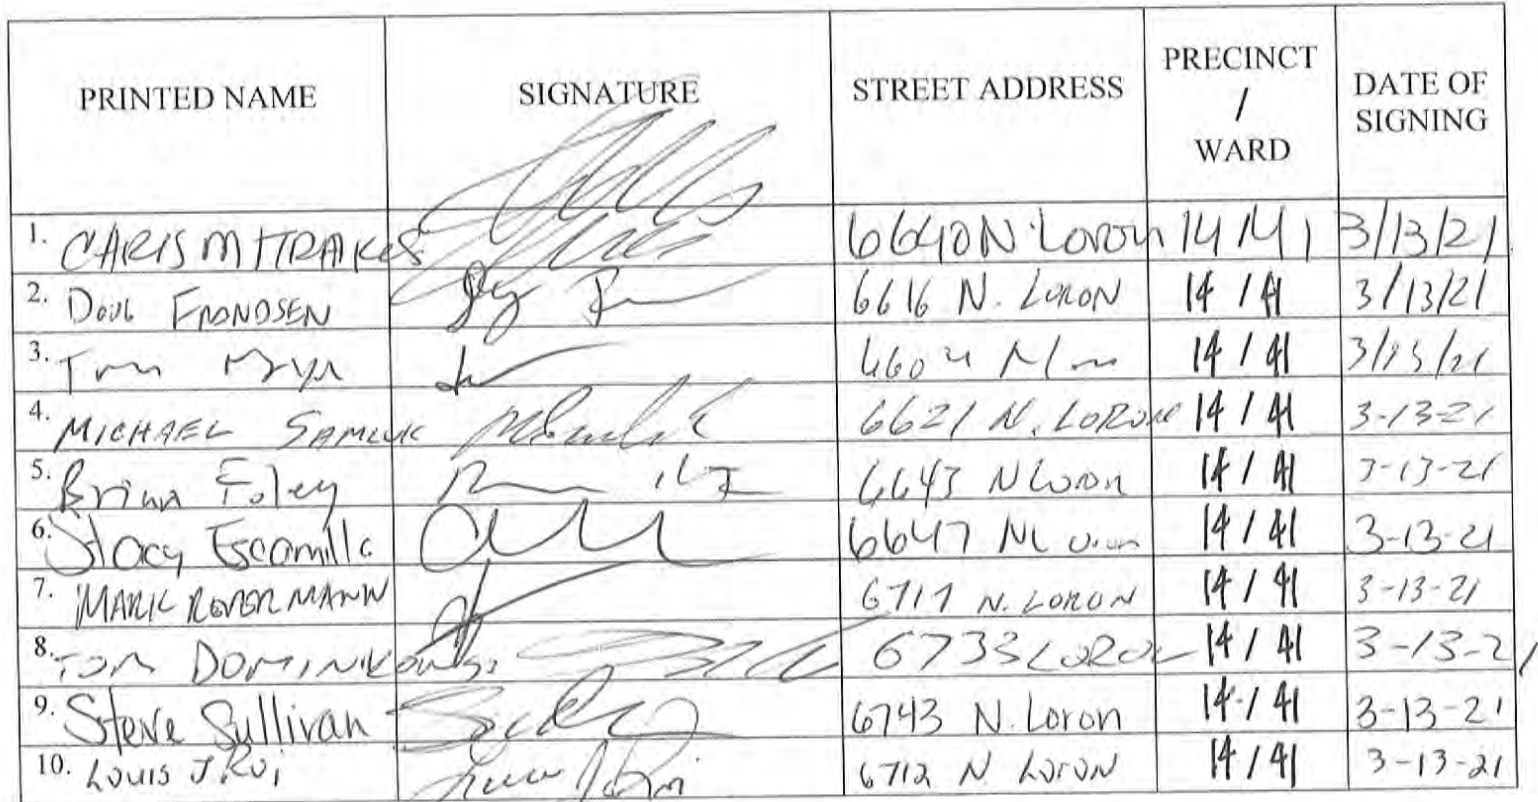 PRINTED NAME SIGNATURE STREET ADDRESS PRECINCT / WARD DATE OF SIGNING
1. CHRIS MITRAKOS 6640 N. Loron 14/41 3/13/21
2. DOUG FRANDSEN 6616 N. LORON 14/41 3/13/21
3. Tom 14/41 3/13/21
4. MICHAEL SAMLUK 6621 N. LORON 14/41 3-13-21
5. Brian Foley 6643 N Loron 14/41 3-13-21
6. Stacy Escamilla 6647 N 14/41 3-13-21
7. MARK REVERMANN 6717 N. LORON 14/41 3-13-21
8. TOM 6733 LORON 14/41 3-13-21
9. Steve Sullivan 6743 N. Loron 14/41 3-13-21
10. LOUIS J. Roi 6712 N Loron 14/41 3-13-21